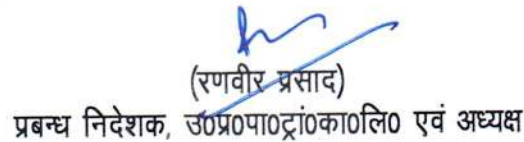 (रणवीर प्रसाद)
प्रबन्ध निदेशक, उ०प्र०पा०ट्रां०का०लि० एवं अध्यक्ष